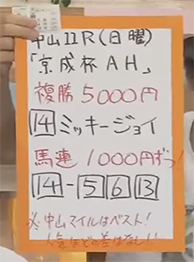 中山11R(日曜)
「京成杯AH」
複勝5000円
14ミッキージョイ
馬連1000円ずつ!
14-5 6 13
※中山マイルはベスト!
人気ほどの差はなし!!